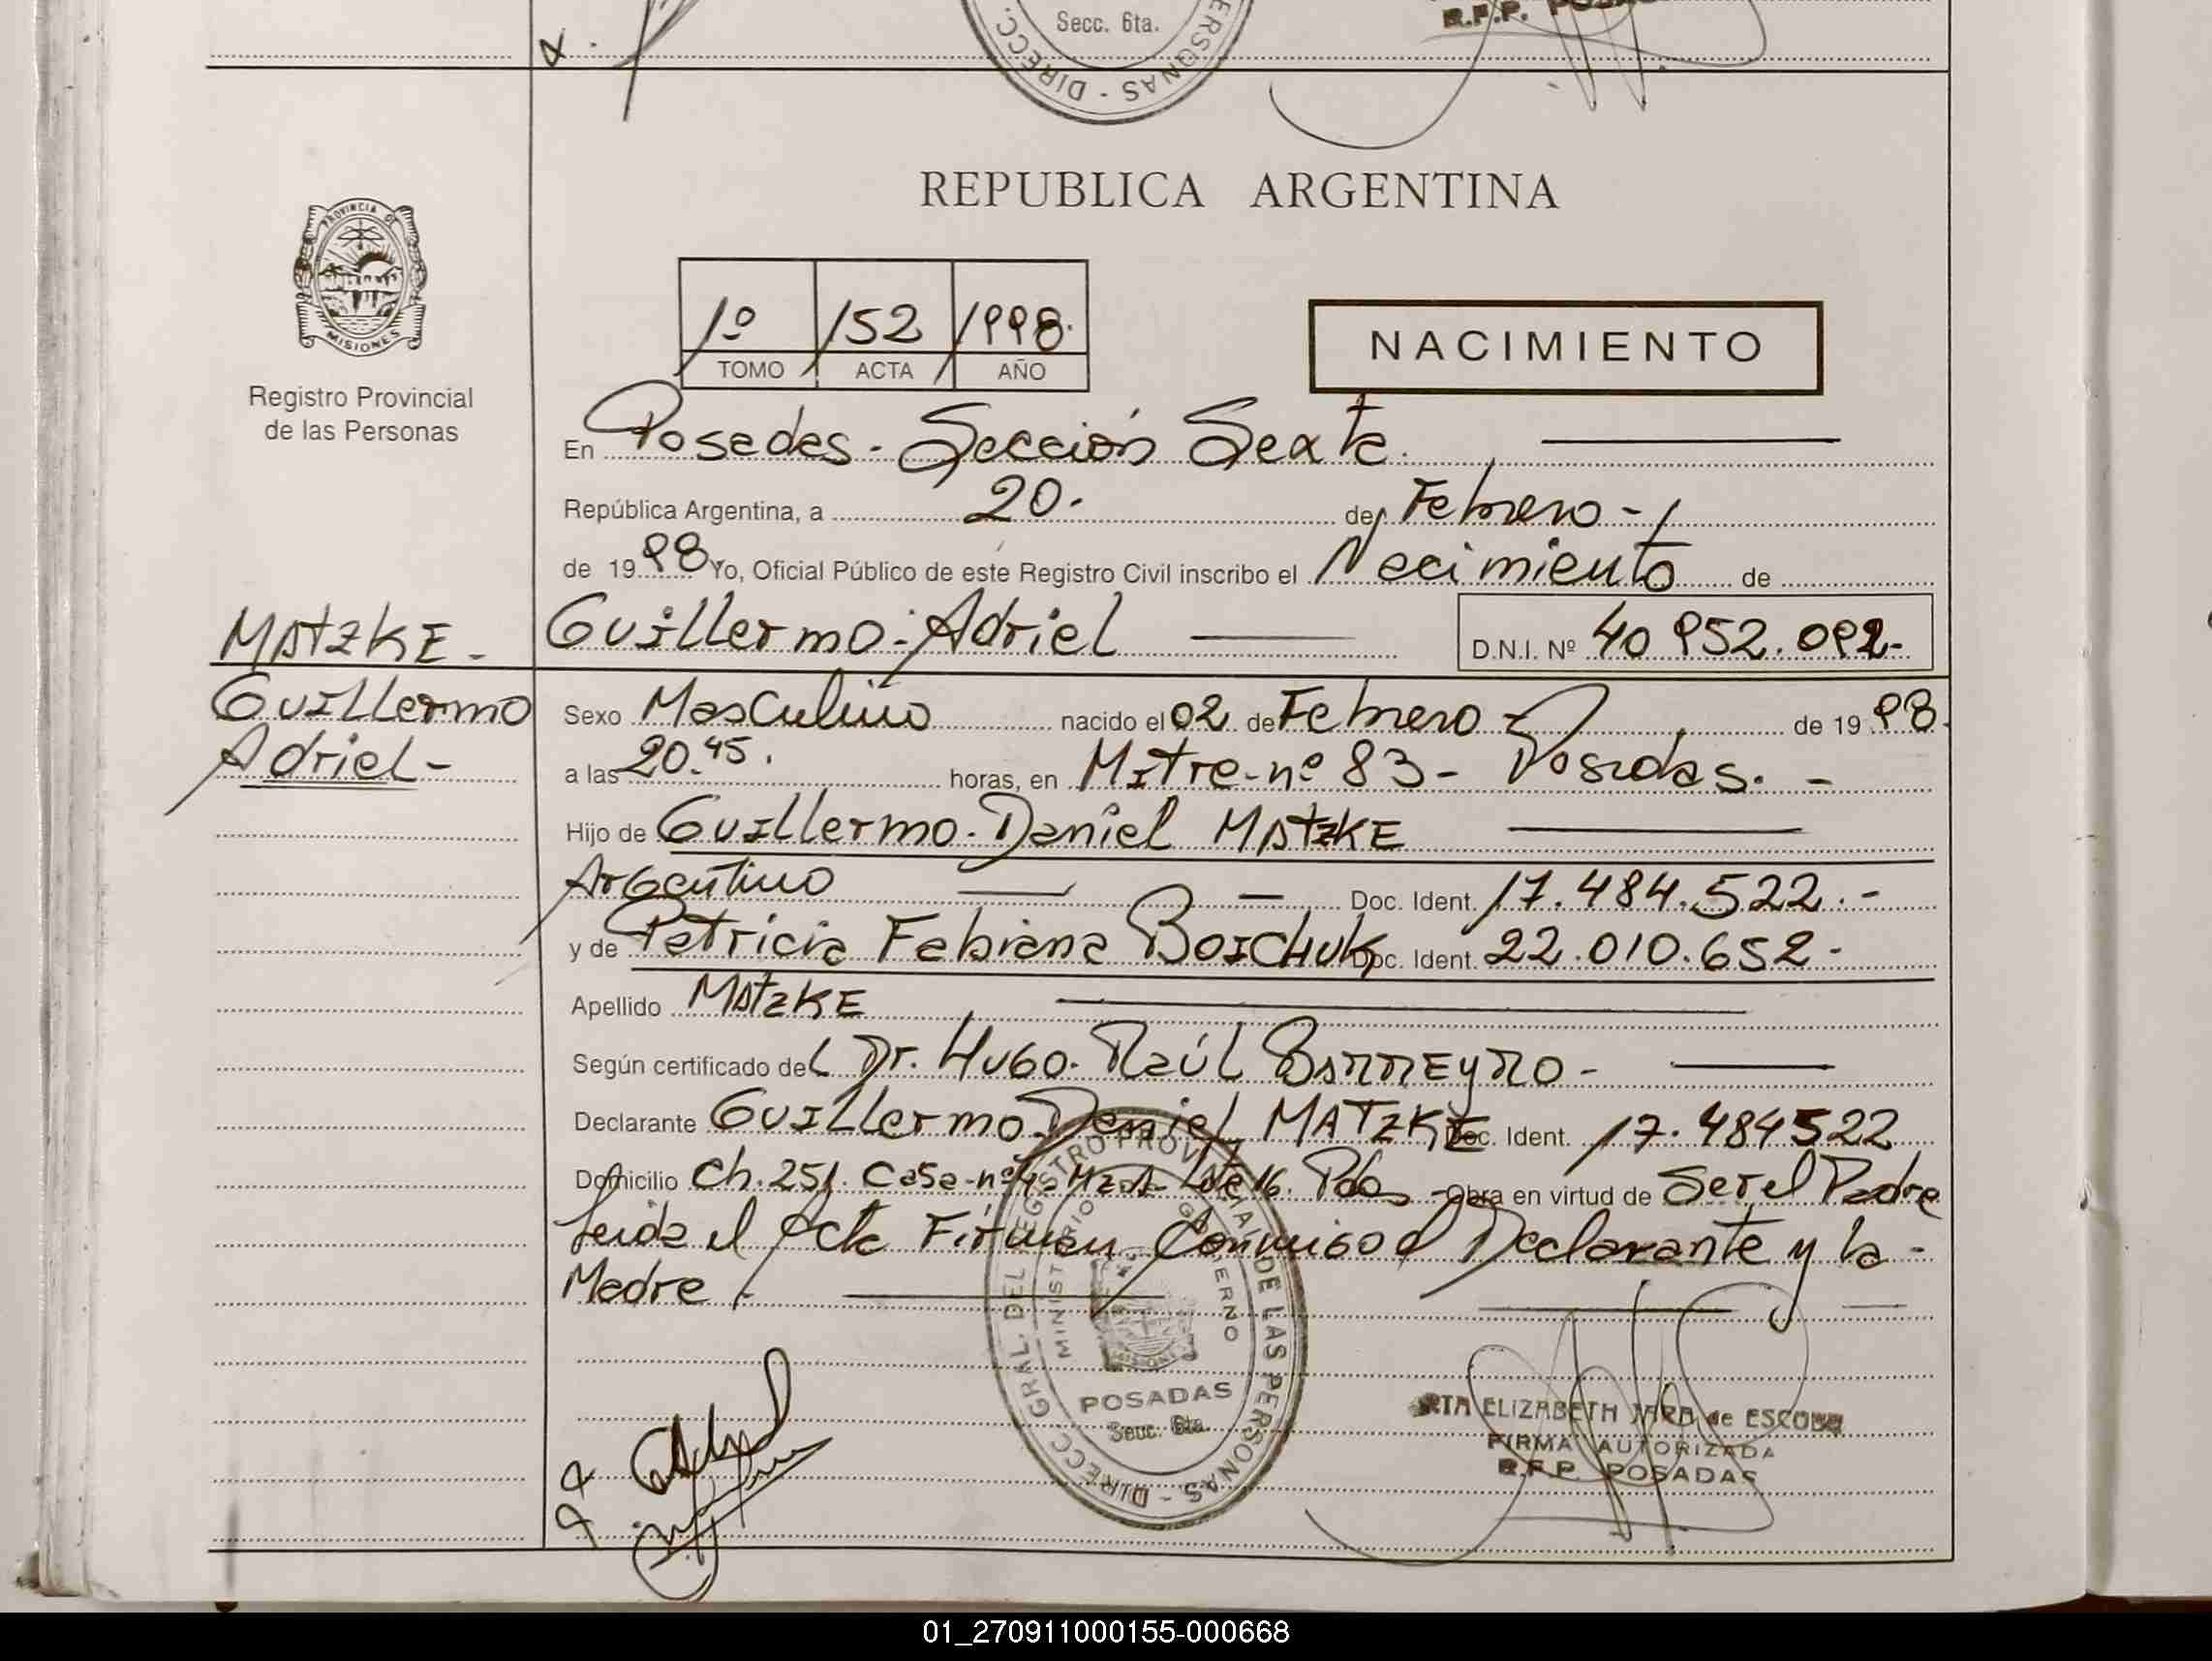 Secc. 6ta.
ERSONAS - DIRECC.
R.P.P.
PROVINCIA DE
MISIONES
Registro Provincial
de las Personas
REPUBLICA ARGENTINA
1º 152 1998.
TOMO ACTA AÑO
NACIMIENTO
En Posadas - Sección Sexta.
República Argentina, a 20. de Febrero -
de 1998 Yo, Oficial Público de este Registro Civil inscribo el Nacimiento de
MATZKE - Guillermo - Adriel D.N.I. Nº 40 952.092-
Guillermo
Adriel -
Sexo Masculino nacido el 02 de Febrero - de 1998.
a las 20.45. horas, en Mitre - nº 83 - Posadas. -
Hijo de Guillermo - Daniel MATZKE
Argentino Doc. Ident. 17.484.522.-
y de Patricia Fabiana BOICHUK Doc. Ident. 22.010.652-
Apellido MATZKE
Según certificado del Dr. Hugo - Raúl BARREYRO -
Declarante Guillermo - Daniel MATZKE Doc. Ident. 17.484522
Domicilio Ch. 251. Casa - nº Lote 16. Pdas - Obra en virtud de Ser el Padre
Leida el Acta Firman Conmigo el Declarante y la -
Madre.
DIRECC GRAL. DEL REGISTRO PROVINCIAL DE LAS PERSONAS -
MINISTERIO GOBIERNO
MISIONES
POSADAS
Secc. 6ta.
ELIZABETH JARA de ESCOBAR
FIRMA AUTORIZADA
R.P.P. POSADAS
01_270911000155-000668